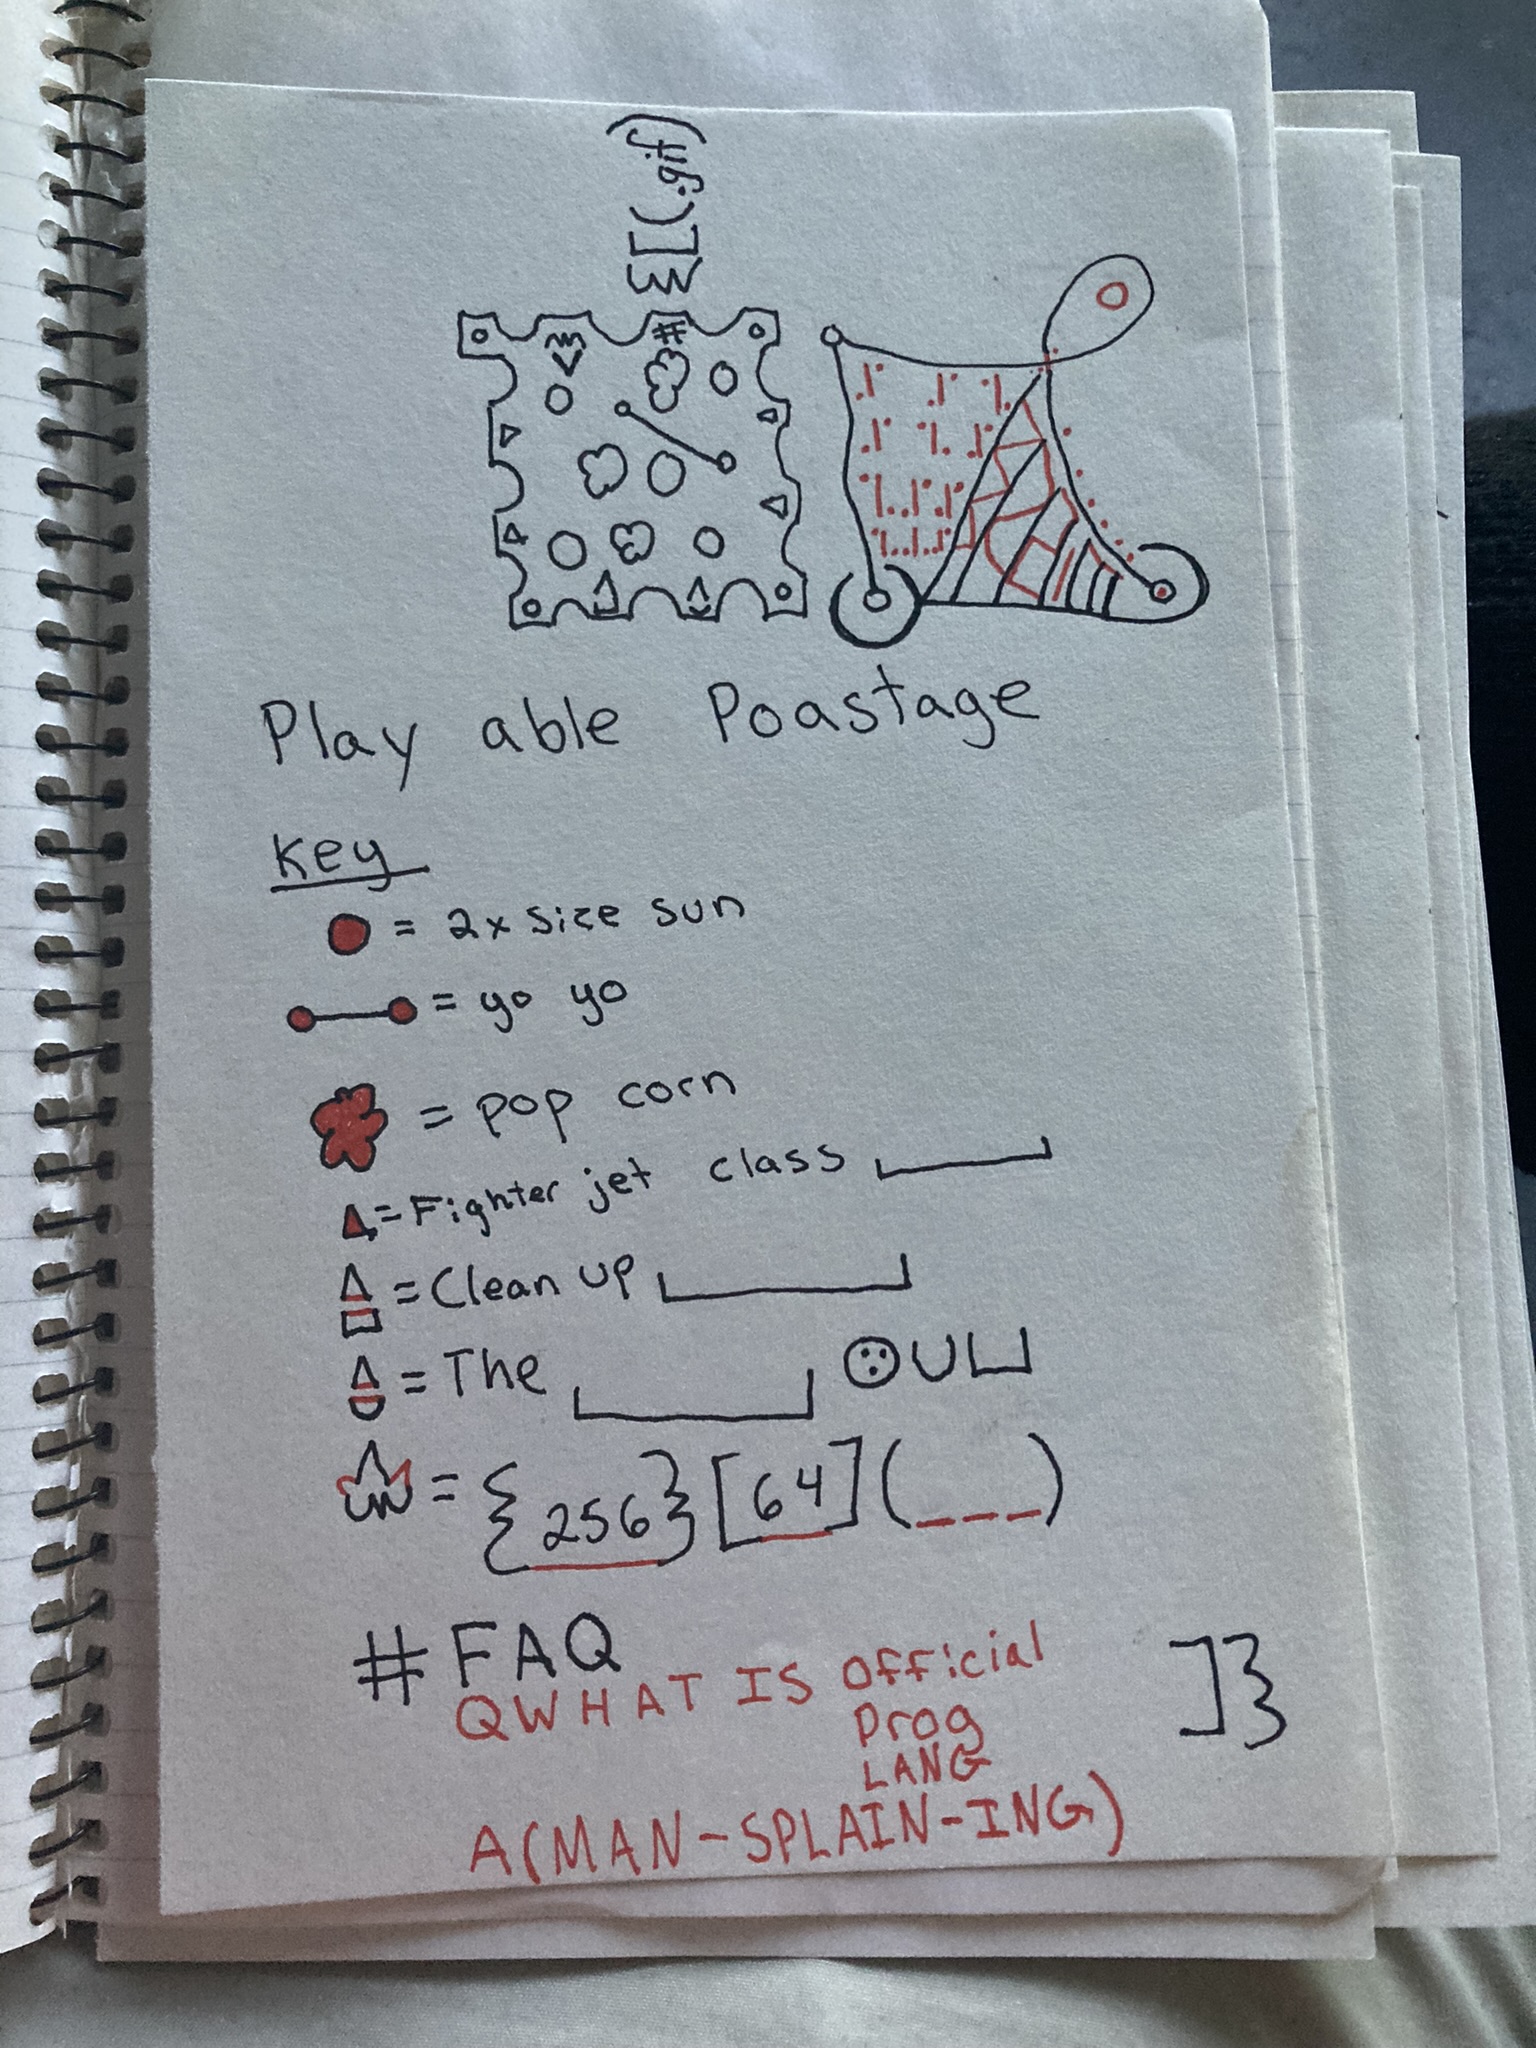 {[(.gif)
#
Play able Poastage
Key
= 2x size sun
= yo yo
= pop corn
= Fighter jet class
= Clean up
= The
= {256}[64](___)
# FAQ
QWHAT IS official
prog
LANG
]}
A(MAN-SPLAIN-ING)